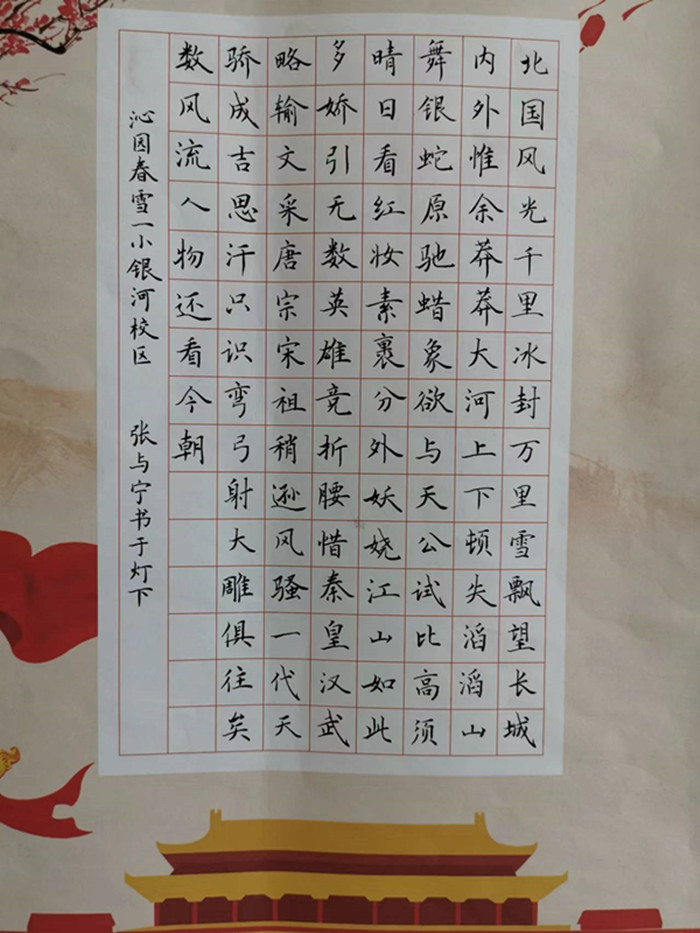 北国风光千里冰封万里雪飘望长城
内外惟余莽莽大河上下顿失滔滔山
舞银蛇原驰蜡象欲与天公试比高须
晴日看红妆素裹分外妖娆江山如此
多娇引无数英雄竞折腰惜秦皇汉武
略输文采唐宗宋祖稍逊风骚一代天
骄成吉思汗只识弯弓射大雕俱往矣
数风流人物还看今朝
沁园春雪一小银河校区 张与宁书于灯下